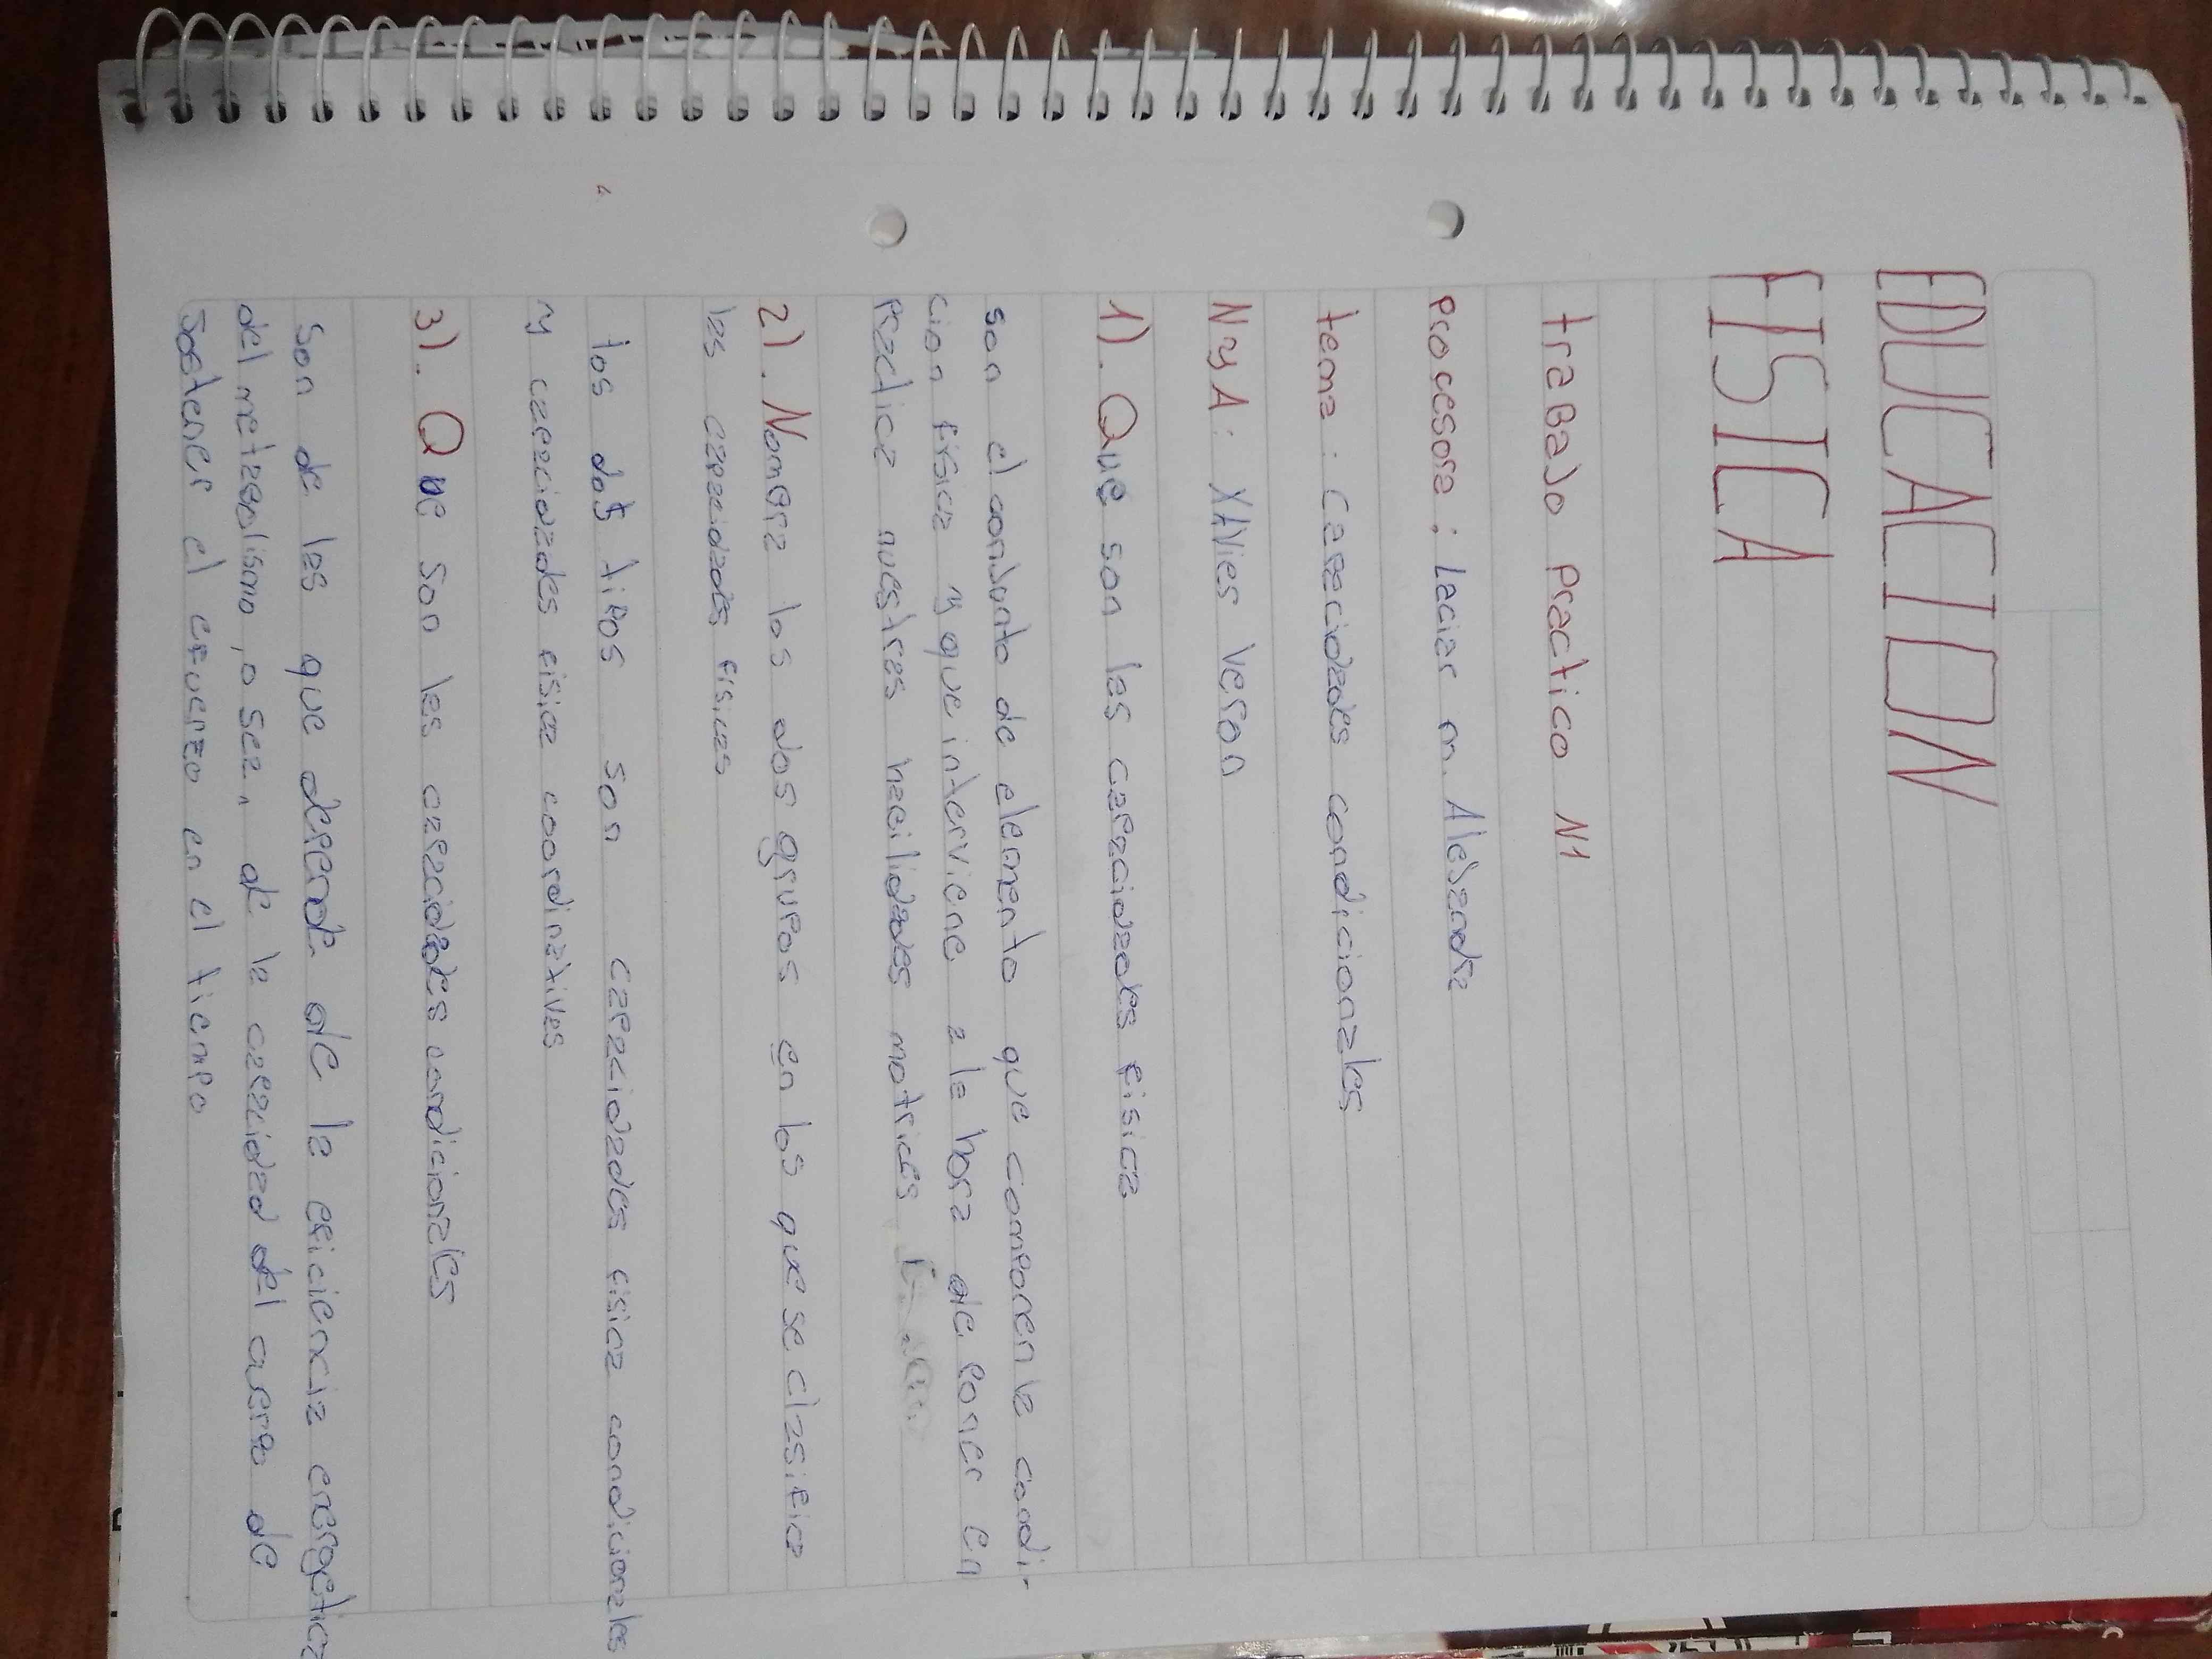 EDUCACION
FISICA
traBaJo Practico N1
Procesora: Laciar M. AleJandra
tema: Capacidades condicionales
N y A: XAVies Veron
1). Que son las capacidades fisica
son el conJunto de elemento que componen la condi-
cion fisica y que interviene a la hora de Poner en
Practica nuestras hacilidades motrices
2). Nombra los dos grupos en los que se clasifica
las capacidades fisicas
los dos tipos son capacidades fisica condicionales
y capacidades fisica coordinativas
3). Que son las capacidades condicionales
Son de las que depende de la eficiencia energetica
del metabolismo, o sea, de la capacidad del cuerpo de
Sostener el esfuerzo en el tiempo